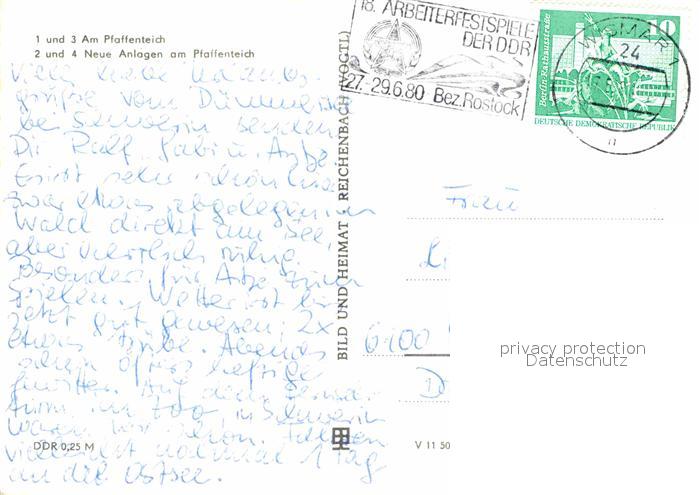 1 und 3 Am Pfaffenteich
2 und 4 Neue Anlagen am Pfaffenteich
18. ARBEITERFESTSPIELE
DER DDR
27.-29.6.80 Bez. Rostock
WISMAR 1
24
10
Berlin, Rathausstraße
DEUTSCHE DEMOKRATISCHE REPUBLIK
Viele liebe
grüße vom
bei Schwerin senden
Dir Ralf, Gabi u. Antje.
Es ist sehr schön hier
zwar etwas abgelegen im
Wald direkt am See,
aber herrlich ruhig.
Besonders für Antje zum
Spielen. Wetter ist bis
jetzt gut gewesen, 2x
etwas trübe. Abends
schon öfters heftige
Gewitter. Auf dem Fernseh-
turm, im Zoo in Schwerin
waren wir schon. Fahren
vielleicht nochmal 1 Tag
an die Ostsee.
BILD UND HEIMAT REICHENBACH (VOGTL)
Frau
6100
privacy protection
Datenschutz
DDR 0,25 M
V 11 50